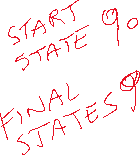 START
STATE q0
FINAL
STATES q